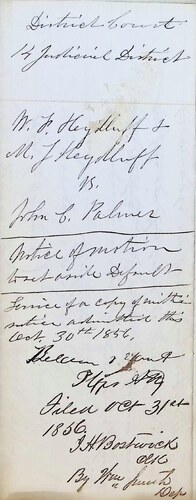 District Court
14 Judicial District
W. F. Heydlauff &
M. J. Heydlauff
vs.
John C. Palmer
Notice of motion
to set aside Default
Service of a copy of within
notice admitted this
Oct. 30th 1856.
Plffs Atty
Filed Oct 31st
1856.
J. H. Bostwick
Clk
By Wm Smith
Dep